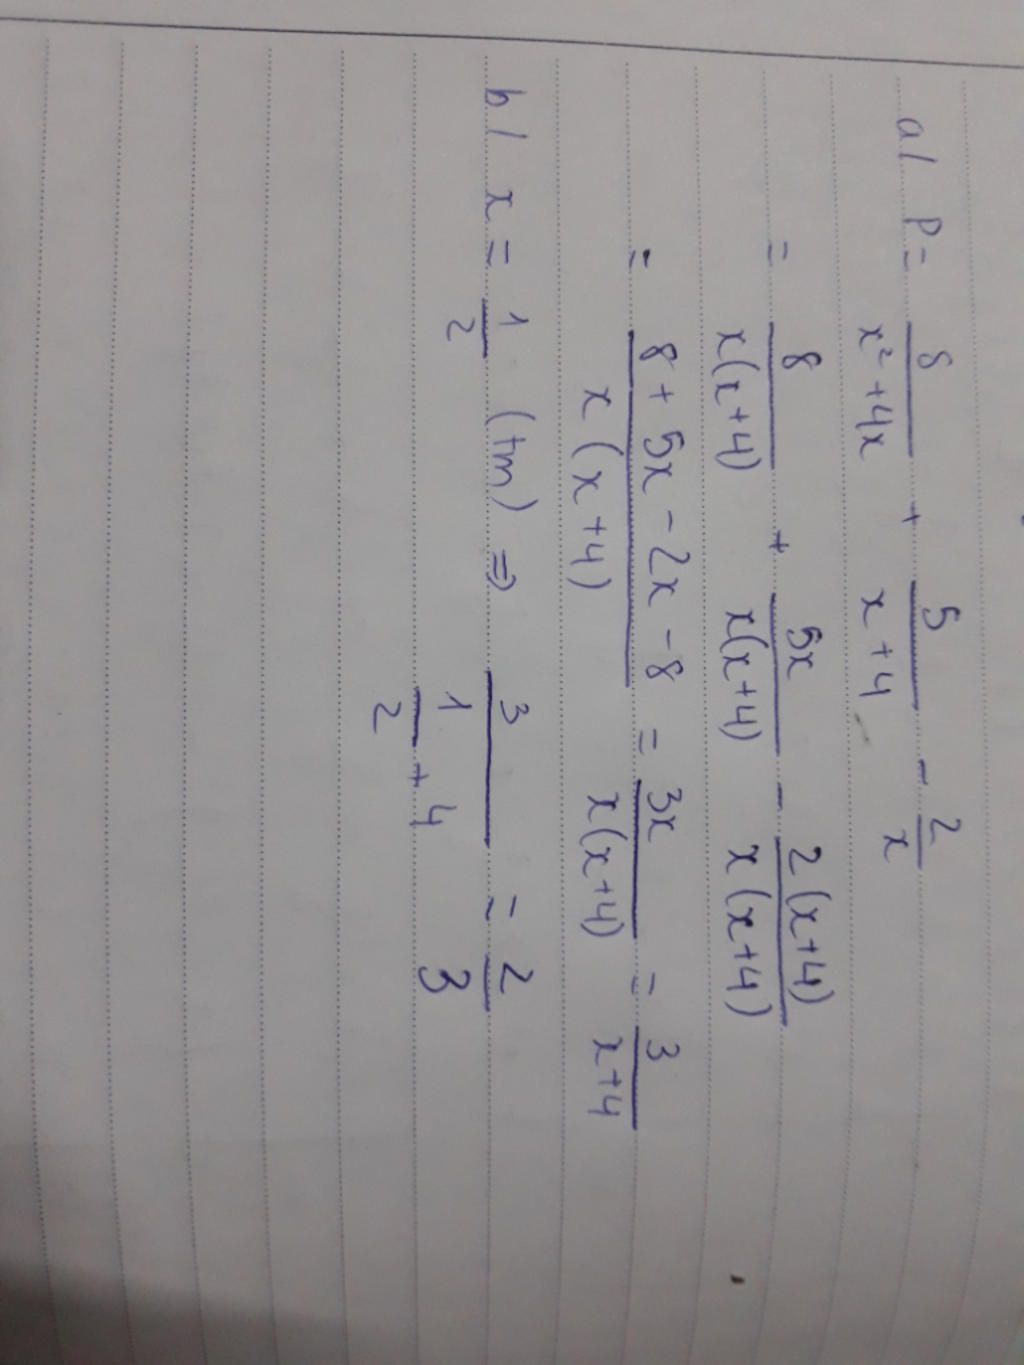 a/ P = 8/(x²+4x) + 5/(x+4) - 2/x
= 8/(x(x+4)) + 5x/(x(x+4)) - 2(x+4)/(x(x+4))
= (8+5x-2x-8)/(x(x+4)) = 3x/(x(x+4)) = 3/(x+4)
b/ x = 1/2 (tm) ⇒ 3/(1/2+4) = 2/3